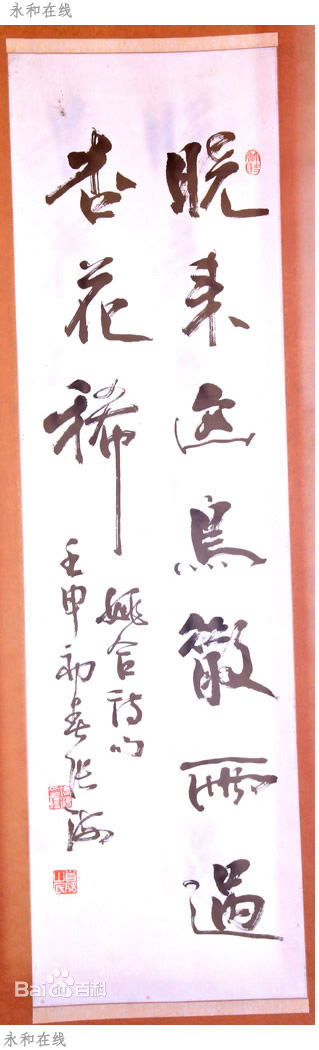 永和在线
晚来幽鳥散雨過
杏花稀
姚合詩句
壬申初春張海
Bai百科
永和在线